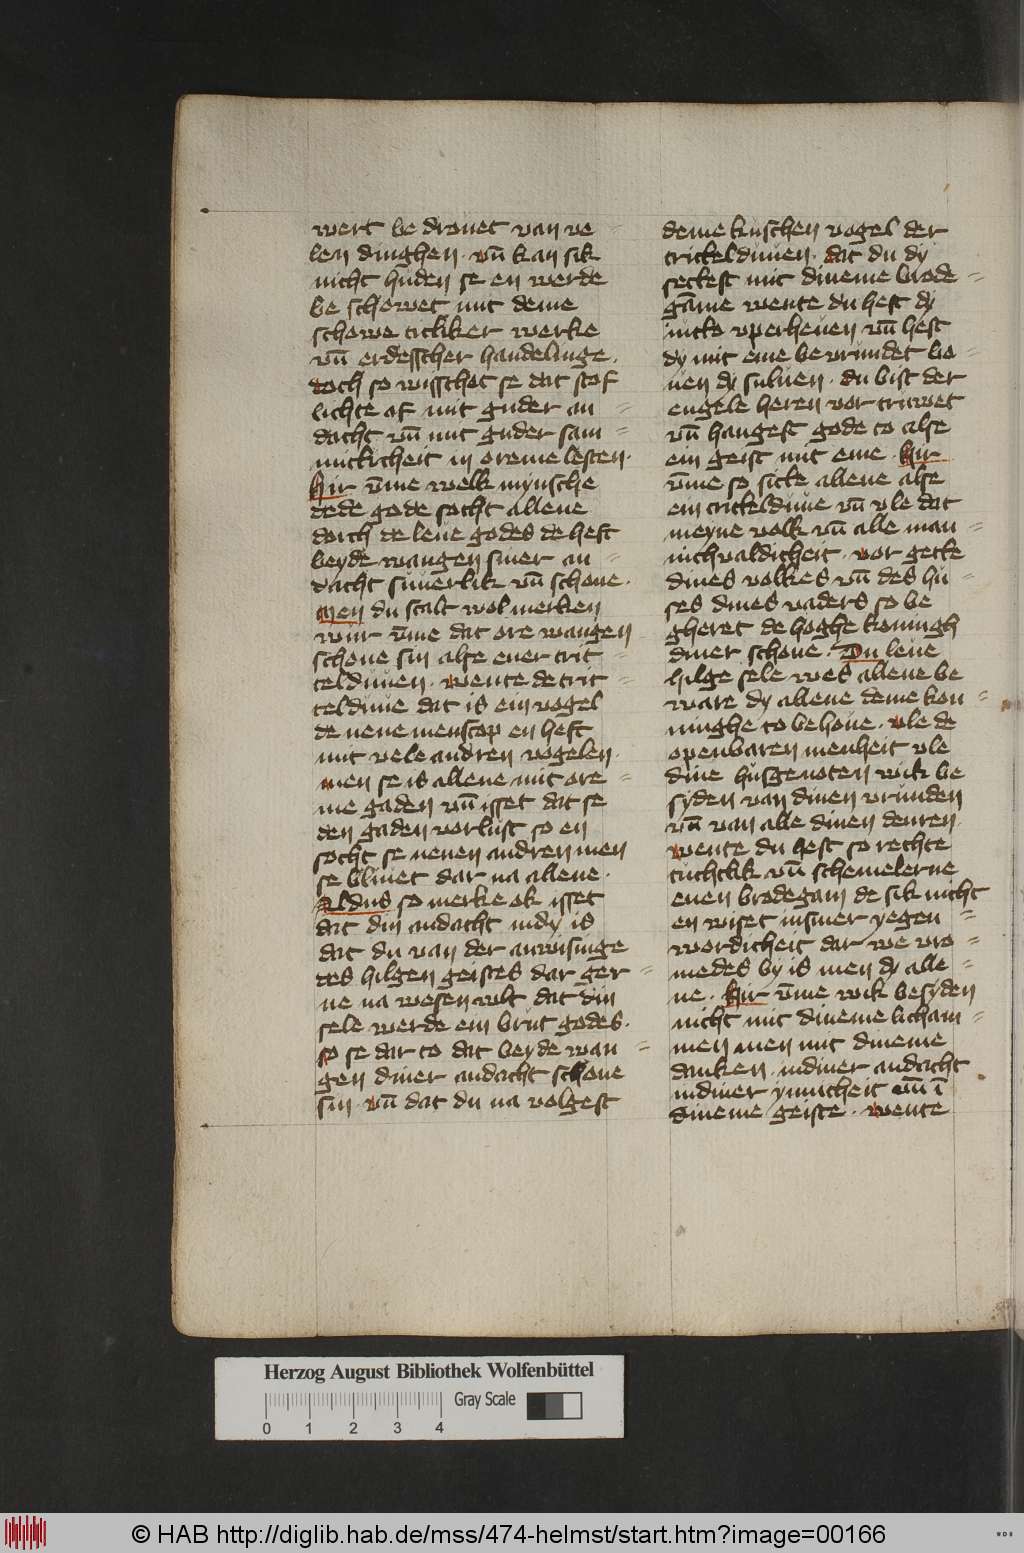 wert be drouet van ve
len dinghen · vn̄ kan sik
nicht huden se en werde
be schowet mit deme
schowe titliker werke
vn̄ erdesscher handelinge ·
doch so wisschet se dat stof
lichte af mit guder an
dacht vn̄ mit guder sam
mitticheit in oreme lesten ·
Hir v̄me welk mynsche
dede gode socht allene
dorch de leue godes de heft
beyde wangen siner an
dacht suuerlik vn̄ schone ·
Men du scalt wol merken
wur v̄me dat ore wangen
schone sin alse ener trit
telduuen · wente de trit
telduue dat is ein vogel
de nene menscop en heft
mit vele andren vogelen ·
men se is allene mit ore
me gaden vn̄ isset dat se
den gaden vorlust so en
socht se nenen andren men
se bliuet dar na allene ·
Aldus so merke ok isset
dat din andacht in dy is
dat du van der anwisinge
des hilgen geistes dar ger
ne na wesen wlt dat din
sele werde ein brut godes ·
so se dar to dat beyde wan
gen diner andacht schone
sin · vn̄ dat du na volgest
deme kuschen vogel der
trittelduuen · dat du dy
settest mit dineme brode
game wente du hest dy
nicko vperheuen vn̄ hest
dy mit eme bevrundet bo
uen dy suluen · du bist der
engele heren vor truwet
vn̄ hangest gode to alse
ein geist mit eme · Hir
v̄me so sitte allene alse
ein trittelduue vn̄ vle dat
meyne volk vn̄ alle man
nichualdicheit · vor gette
dines volkes vn̄ des hu
ses dines vaders so be
gheret de hoghe koningh
diner schone · Du leue
hilge sele wes allene be
ware dy allene deme kon
ninghe to behoue · vle de
openbaren menheit vle
dine husgenoten wik be
syden van dinen vrunden
vn̄ van alle dinen denren ·
wente du hest so rechte
tuchtlik vn̄ schemelerne
enen brodegam de sik nicht
en wiset in siner yegen
wordicheit dar we vro
medes by is men dy alle
ne · Hir v̄me wik besyden
nicht mit dineme licham
men men mit dineme
danken · in diner andacht
in diner ynnicheit vn̄ ī
dineme geiste · wente
Herzog August Bibliothek Wolfenbüttel
Gray Scale
0 1 2 3 4
© HAB http://diglib.hab.de/mss/474-helmst/start.htm?image=00166
WDB